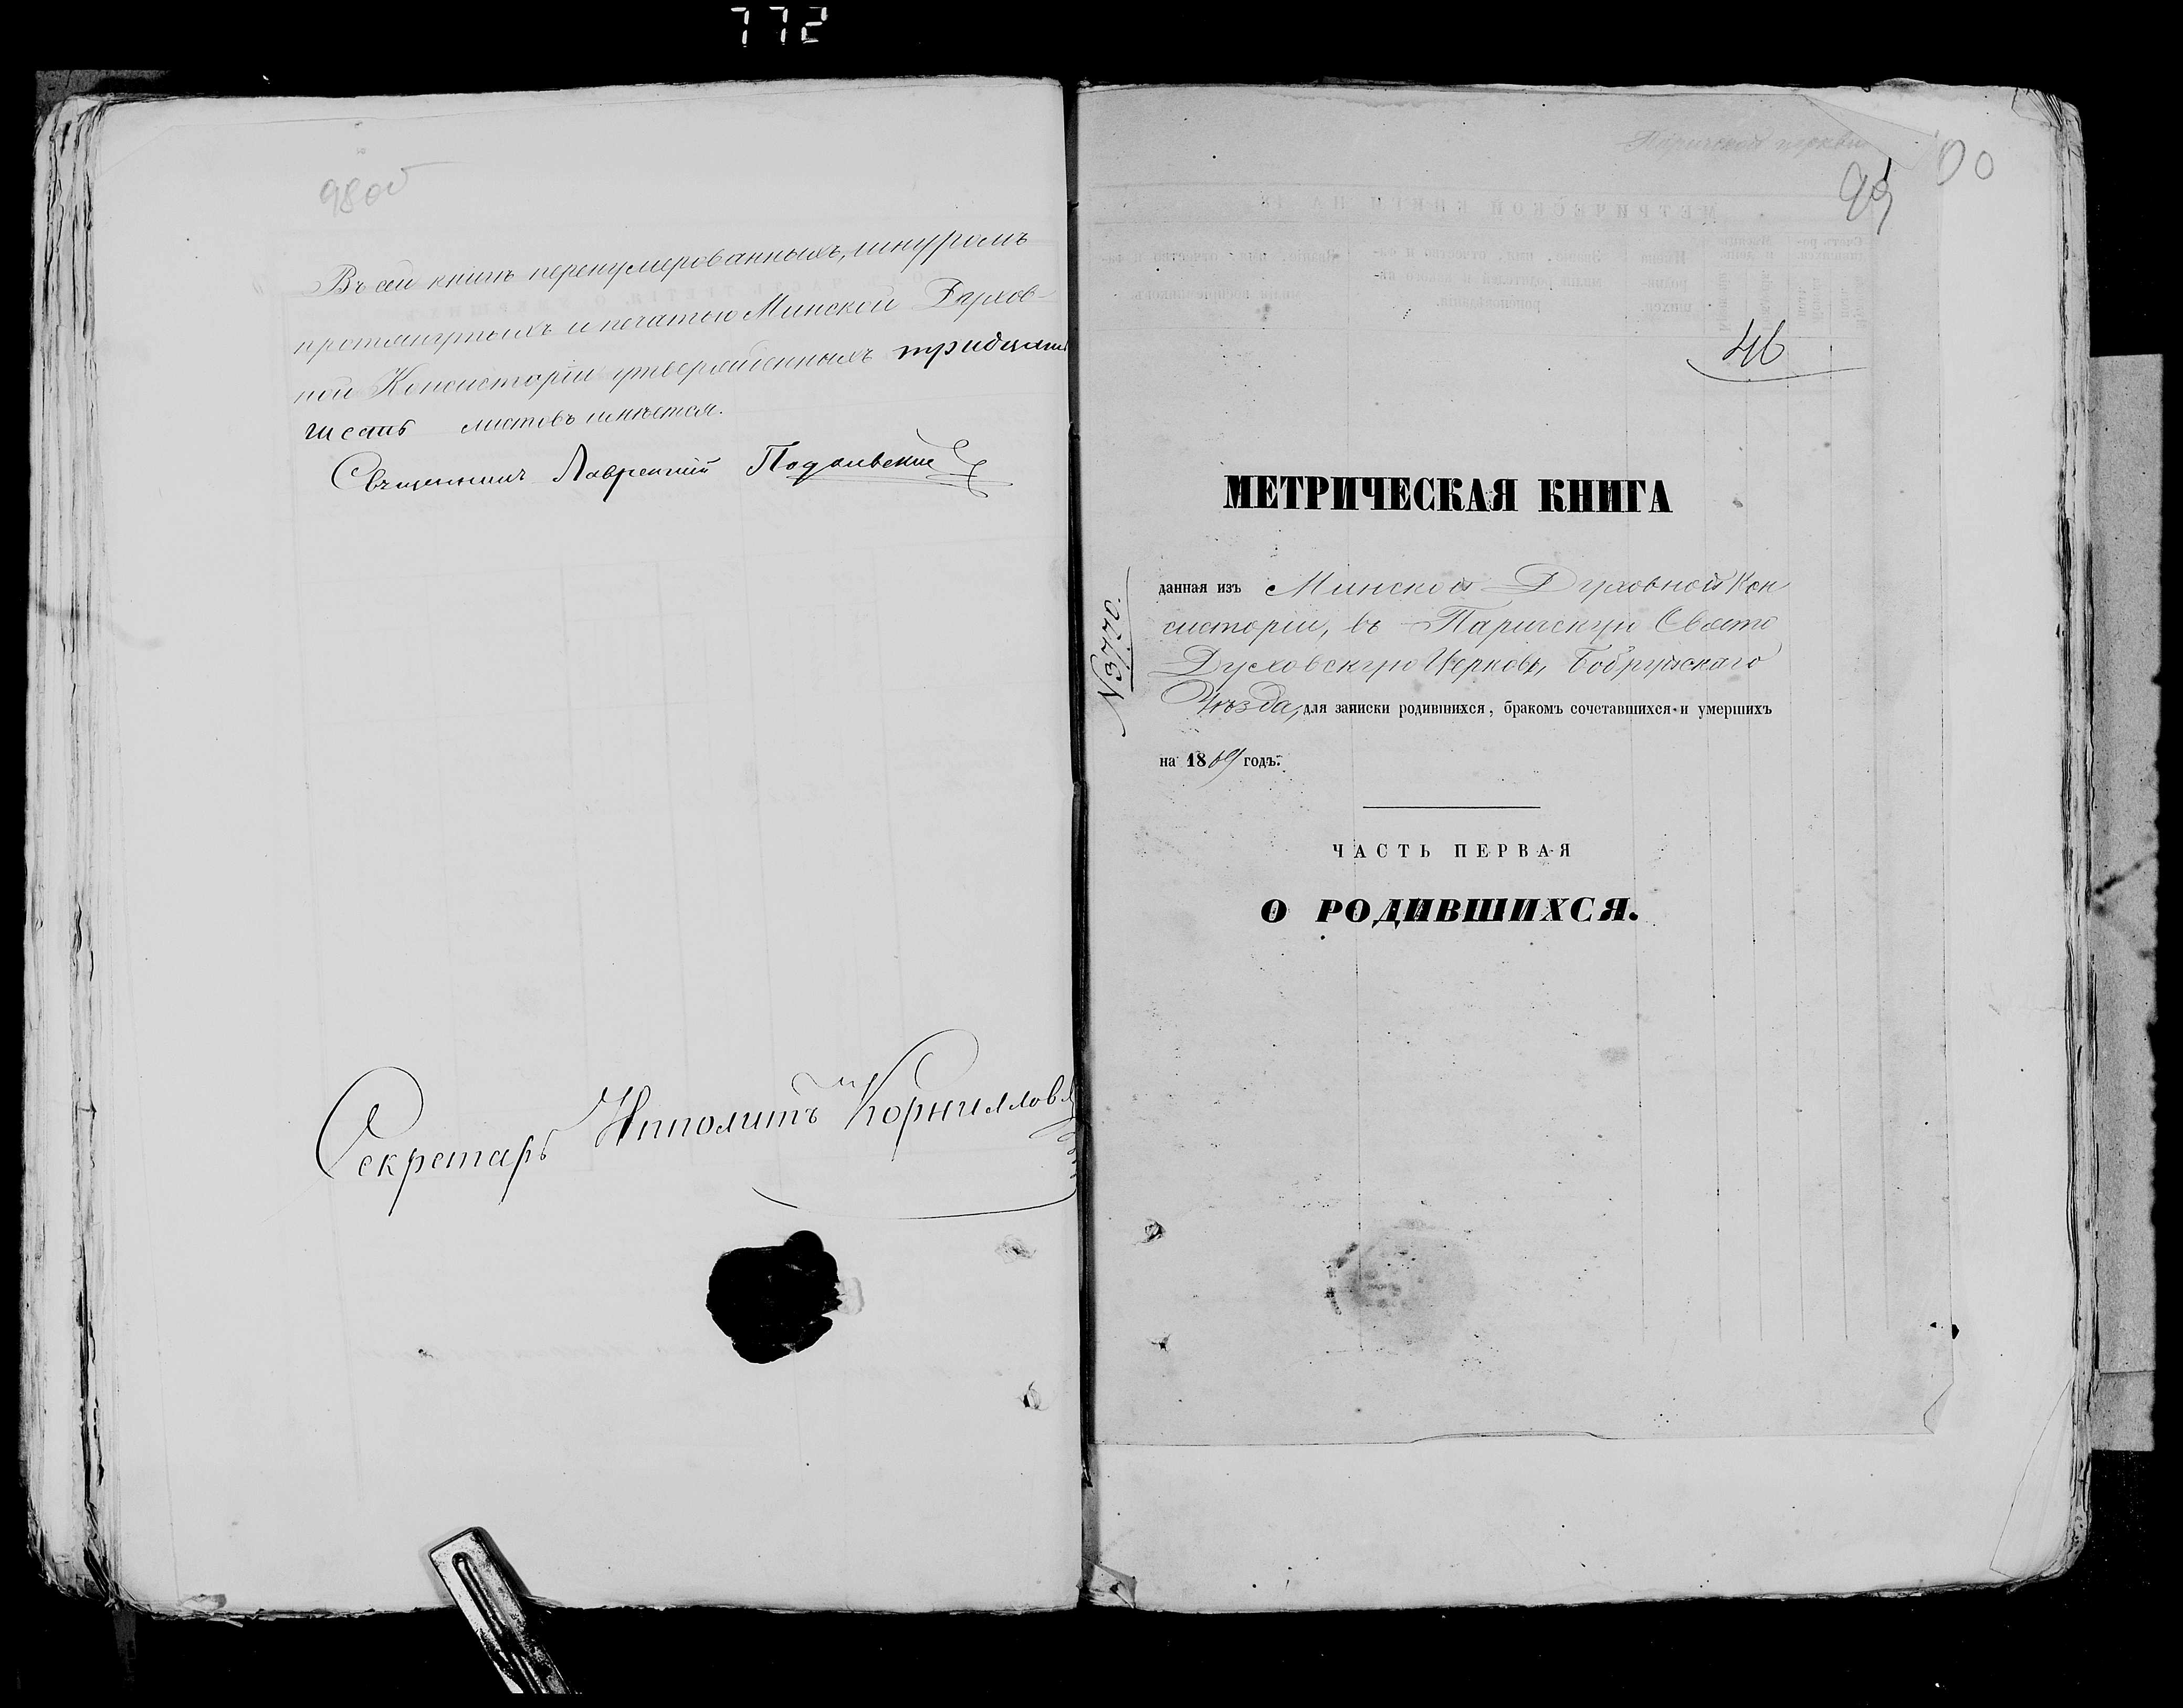 772
98об
Въ сей книгѣ перенумерованныхъ, шнуромъ
протянутыхъ и печатью Минской Духов-
ной Консисторіи утвержденныхъ тридцать
шесть листовъ имѣется.
Священникъ Лаврентій Подольскій
Секретарь Ипполитъ Корниловъ
Паричской церкви
99
00
46
МЕТРИЧЕСКАЯ КНИГА
№3770.
данная изъ Минской Духовной Кон
систоріи, въ Паричскую Свято
Духовскую Церковь, Бобруйскаго
Уѣзда, для записки родившихся, бракомъ сочетавшихся и умершихъ
на 1869 годъ.
ЧАСТЬ ПЕРВАЯ
О РОДИВШИХСЯ.